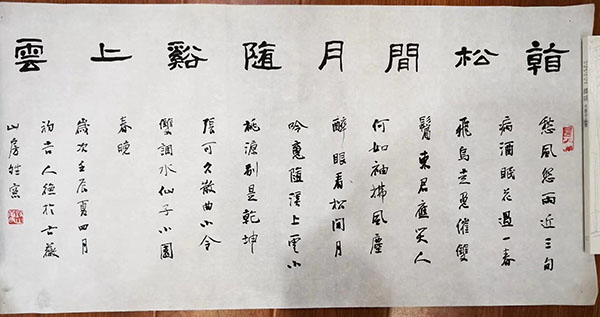 松間月隨谿上雲
愁風怨雨近三旬
病酒眠花過一春
飛烏走兔催雙
鬢東君應笑人
何如袖拂風塵
醉眼看松間月
吟魂隨溪上雲小
桃源別是乾坤
張可久散曲小令
雙調水仙子小園
春晚
歲次壬辰夏四月
人於古薇
山房